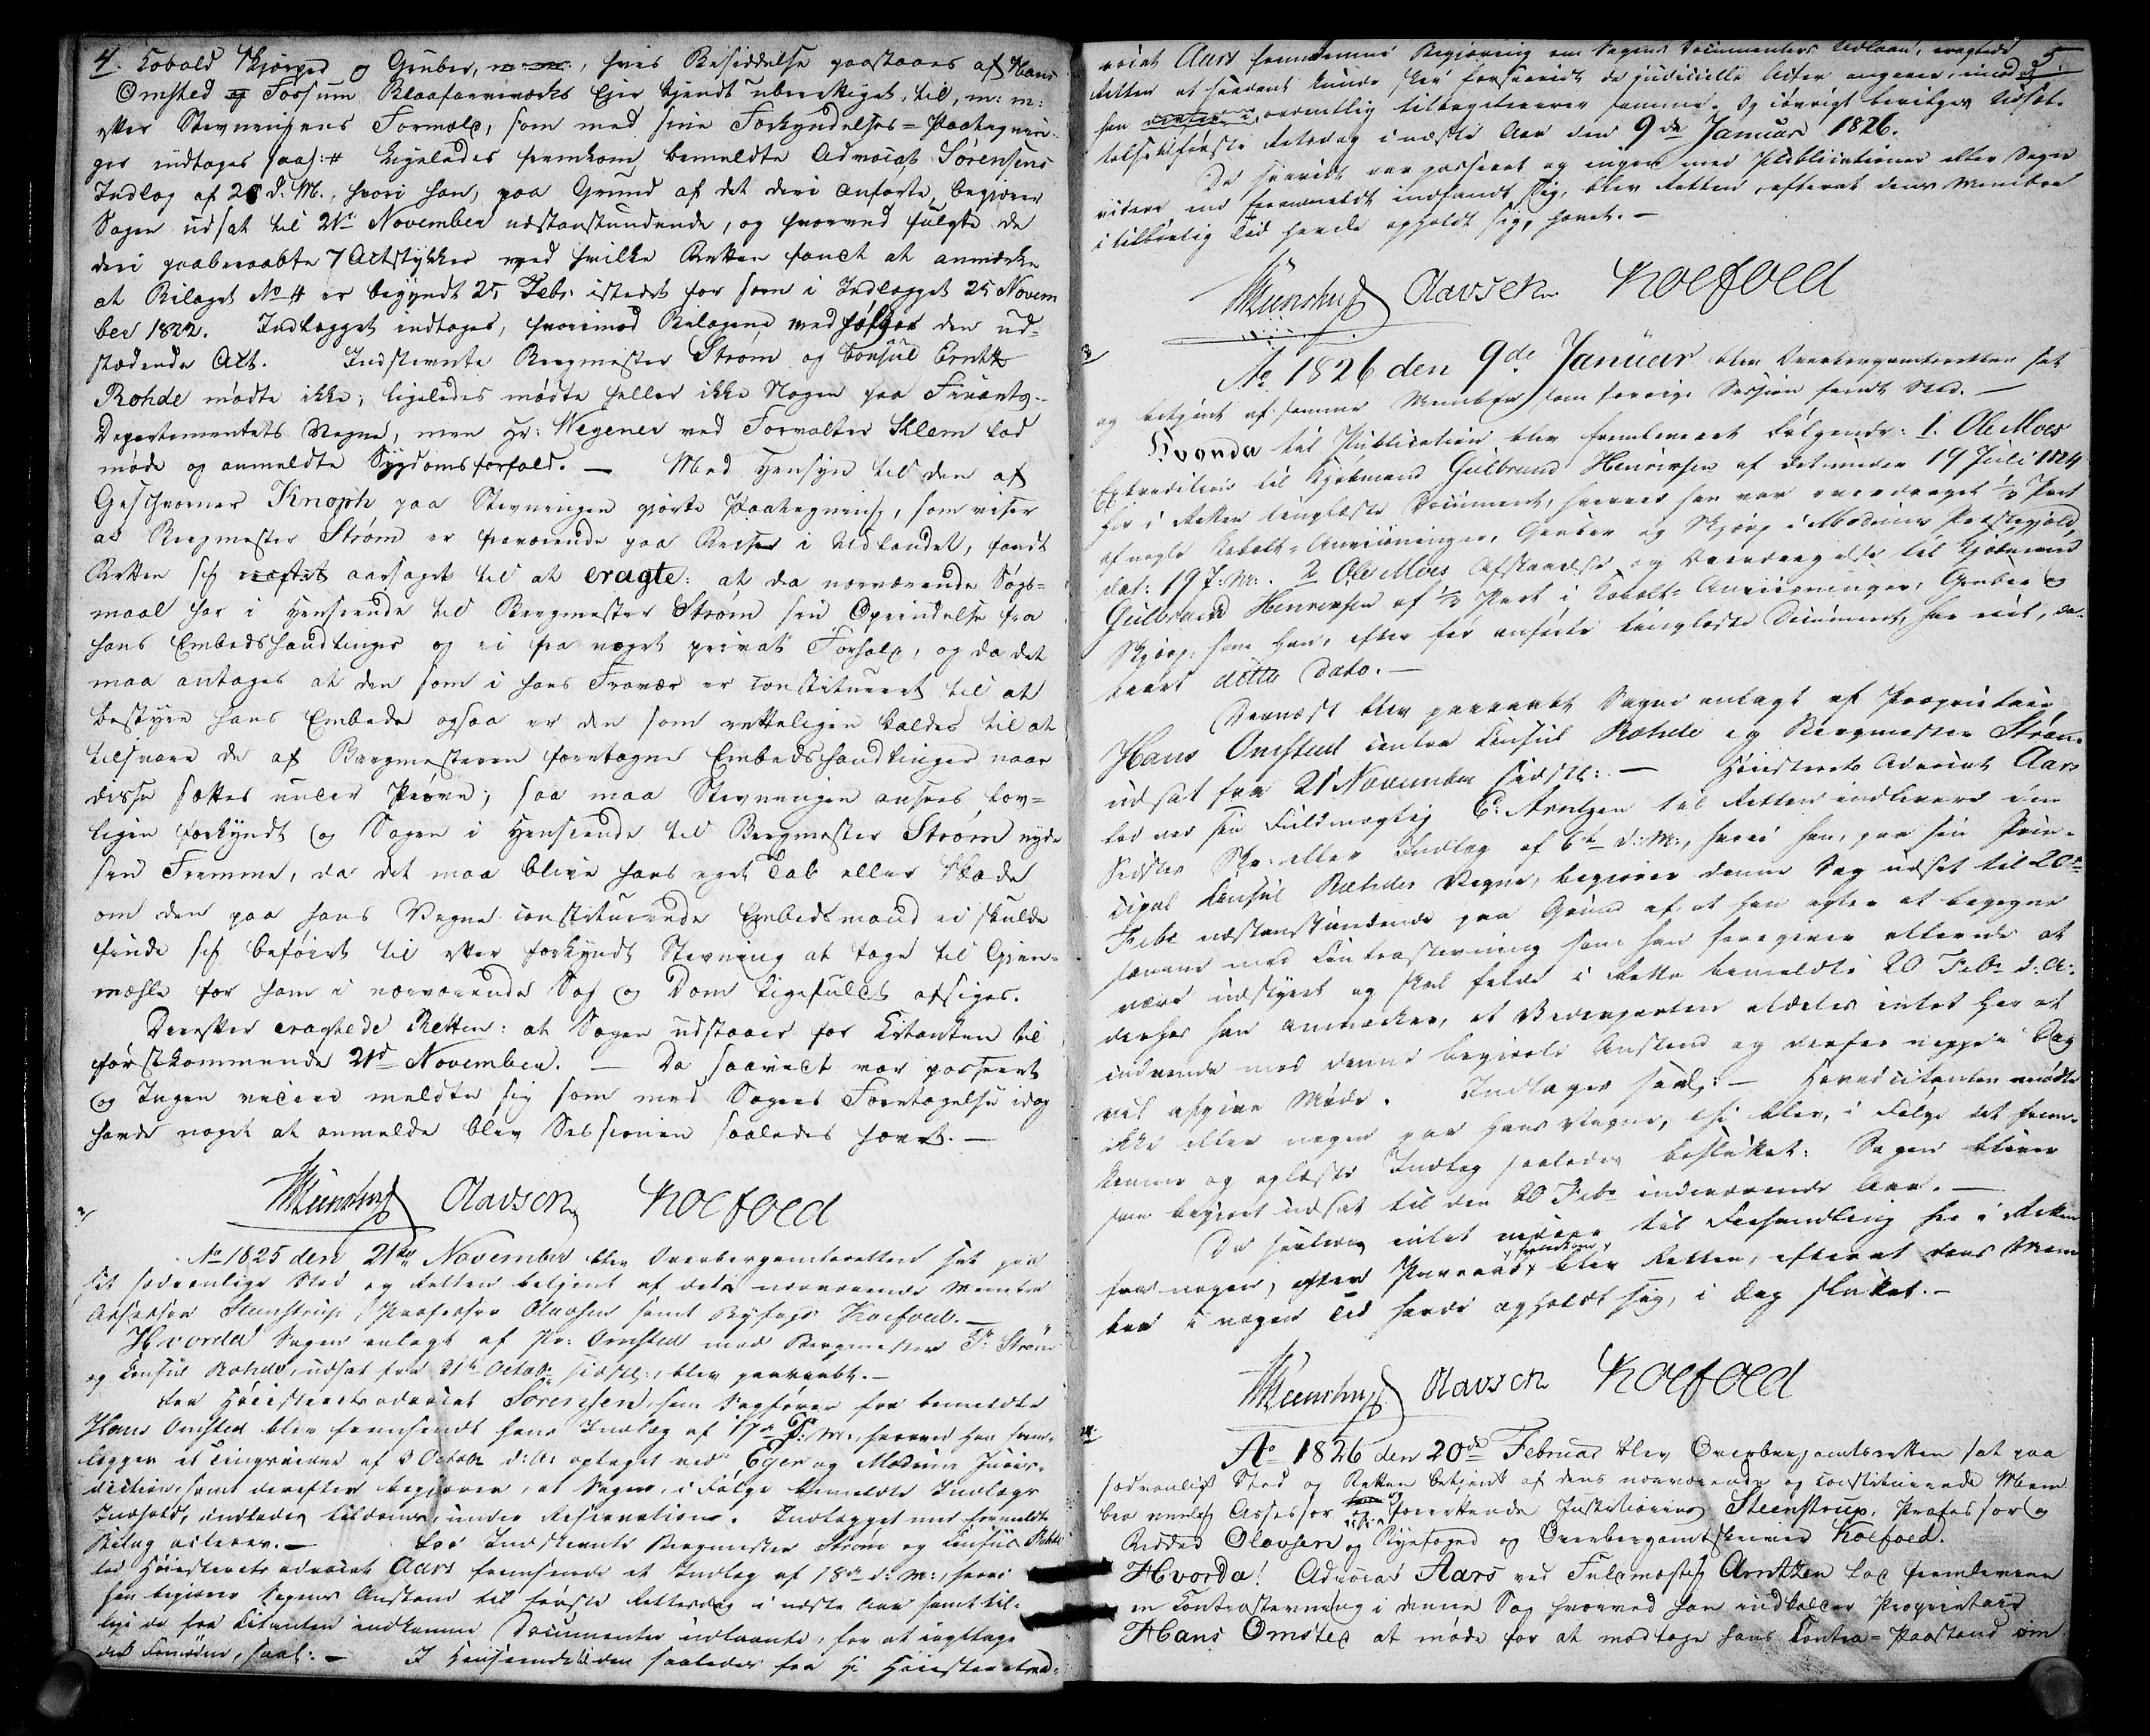 4. Cobald Skjærped og Gruber, m: m:, hvis Besiddelse paastaaes af Hans
Omsted og Fossum Blaafarveværks Eier kjendt uberettiget, til, m: m:
efter Stevningens Formæld, som med sine Forkyndelses-Paategnin-
ger indtages saal: # Ligeledes fremkom bemeldte Advocat Sørensens
Indlæg af 20 d: M., hvori han, paa Grund af det deri anførte, begjærer
Sagen udsat til 21de November næstanstundende, og hvorved fulgte de
deri paaberaabte 7 Actstykker ved hvilke Retten fandt at anmærke
at Bilaget No 4 er begyndt 25 Feb: istedet for som i Indlægget 25 Novem
ber 1822. Indlægget indtages, hvorimod Bilagene ved følger den ud-
stædende Act. Indstevnte Bergmester Strøm og Consul Erntz
Rohde mødte ikke; ligeledes mødte heller ikke Nogen paa Finants-
Departementets Vegne, men Hr: Wegener ved Forvalter Klem lod
møde og anmeldte Sygdomsforfald. — Med Hensyn til den af
Geschworner Knoph paa Stevningen gjorte Paategning, som viser
at Bergmester Strøm er fraværende paa Reiser i Udlandet, fandt
Retten sig aarsaget til at eragte: at da nærværende Søgs-
maal har i Henseende til Bergmester Strøm sin Oprindelse fra
hans Embedshandlinger og ei fra noget privat Forhold, og da det
maa antages at den som i hans Fravær er constitueret til at
bestyre hans Embede ogsaa er den som retteligen kaldes til at
tilsvare de af Bergmesteren foretagne Embedshandlinger naar
disse sættes under Prøve; saa maa Stevningen ansees lov-
ligen forkyndt og Sagen i Henseende til Bergmester Strøm nyde
sin Fremme, da det maa blive hans eget Tab eller Skade
om den paa hans Vegne constituerede Embedsmand ei skulde
finde sig beføiet til efter forkyndt Stevning at tage til Gjen-
mæhle for ham i nærværende Sag og Dom ligefuldt afsiges.
Derefter eragtede Retten: at Sagen udstaaer for Citanten til
førstkommende 21de November. — Da saavidt var passeret
og Ingen videre meldte sig som med Sagens Foretagelse idag
havde noget at anmelde blev Sessionen saaledes hævet. —
Steenstrup Olavsen Koefoed
Ao 1825 den 21de November blev Overbergamtsretten sat paa
sit sædvanlige Sted og Retten betjent af dets nærværende Membra
Assessor Steenstrup, Professor Olavsen samt Byfoged Koefoed. —
Hvorda Sagen anlagt af Pr: Omsted mod Bergmester Strøm
og Consul Rohde, udsat fra 21de Octobr sidstl:, blev paaraabt. —
Fra Høiesteretsadvocat Sørensen, som Sagfører for bemeldte
Hans Omsted blev fremsendt hans Indlæg af 17de d: M:, hvorved han frem-
lægger et Tingsvidne af 3 Octobr d: A: optaget ved Eger og Modums Juris-
diction, samt derefter begjærer, at Sagen, i Følge bemeldte Indlægs
Indhold, indlades til Doms, under Reservation. Indlægget med formeldte
Bilag acteres. — For Indstevnte Bergmester Strøm og Consul Rohde
lod Høiesteretsadvocat Aars fremsende et Indlæg af 18de d: M:, hvori
han begjærer Sagens Anstand til første Retsdag i næste Aar samt til-
lige de fra Citanten indkomne Documenter udlaante, for at iagttage
det Fornødne, saal: — I Henseende til den saaledes fra Hr Høiesteretsad-
5.
vocat Aars fremkomne Begjæring om Sagens Documenters Udlaan, eragtede
Retten at saadant kunde skee forsaavidt de judicielle Acter angaaer, imod at
han ordentlig tilbageleverer samme. Og iøvrigt bevilges Udsæt-
telse til første Retsdag i næste Aar den 9de Januar 1826.
Da saavidt var passeret og ingen med Publicationer eller Sager
videre end formeldt indfandt sig, blev Retten, efterat dens Membra
i tilbørlig Tid havde opholdt sig, hævet. —
Steenstrup Olavsen Koefoed
Ao 1826 den 9de Januar blev Overbergamtsretten sat
og betjent af samme Membra som forrige Session samt Sted. —
Hvorda til Publication blev fremleveret Følgende: 1. Ole Moes
Extradition til Kjøbmand Gulbrand Henriksen af det under 19 Juli 1824
her i Retten tinglæste Document, hvorved han var overdraget 1/3 Part
af nogle Kobolt-Anviisninger, Gruber og Skjærp i Modums Præstegjeld,
dat: 19 f: M:. 2 Ole Moes Afstaaelse og Overdragelse til Kjøbmand
Gulbrand Henriksen af 1/3 Part i Kobolt-Anviisninger, Gruber og
Skjærp, som han, efter før anførte tinglæste Document, har eiet, da-
teret ditto dato. —
Dernæst blev paaraabt Sagen anlagt af Proprietair
Hans Omsted contra Consul Rohde og Bergmester Strøm
udsat fra 21 November sidstl: — Høiesterets Advocat Aars
lod ved sin Fuldmægtig C: Arntzen til Retten indlevere den
Sidstes Skr: eller Indlæg af 6te d: M:, hvori han, paa sin Prin-
cipal Consul Rohdes Vegne, begjærer denne Sag udsat til 20de
Febr næstanstundende paa Grund af at han agter at begegne
samme med Contrastevning som han foregiver allerede at
være udstyret og skal falde i Rette bemeldte 20 Febr d: A:
derhos han anmærker, at Vederparten aldeles intet har at
indvende mod denne begjærte Anstand og derfor neppe i Dag
vil afgive Møde. Indtages saal: — Hovedcitanten mødte
ikke eller nogen paa hans Vegne, thi blev, i Følge det frem-
komne og oplæste Indlæg saaledes besluttet: Sagen bliver
som begjært udsat til den 20 Febr indeværende Aar. —
Da saaledes intet videre til Forhandling her i Retten
fremkom
fra nogen, efter Paaraab, blev Retten, efterat dens Mem-
bra i nogen Tid havde opholdt sig, i Dag sluttet. —
Steenstrup Olavsen Koefoed
Ao 1826 den 20de Februar blev Overbergamtsretten sat paa
sædvanligt Sted og Retten betjent af dens nærværende og constituerede Mem
bra nemlig Assessor og Foresttende Justitiarius Steenstrup, Professor og
Ridder Olavsen og Byefoged og Overbergamtskriver Koefoed.
Hvorda! Advocat Aars ved Fuldmægtig Arntzen lod fremlevere
en Contrastevning i denne Sag hvorved han indkalder Proprietair
Hans Omsted at møde for at modtage hans Contra-Paastand om